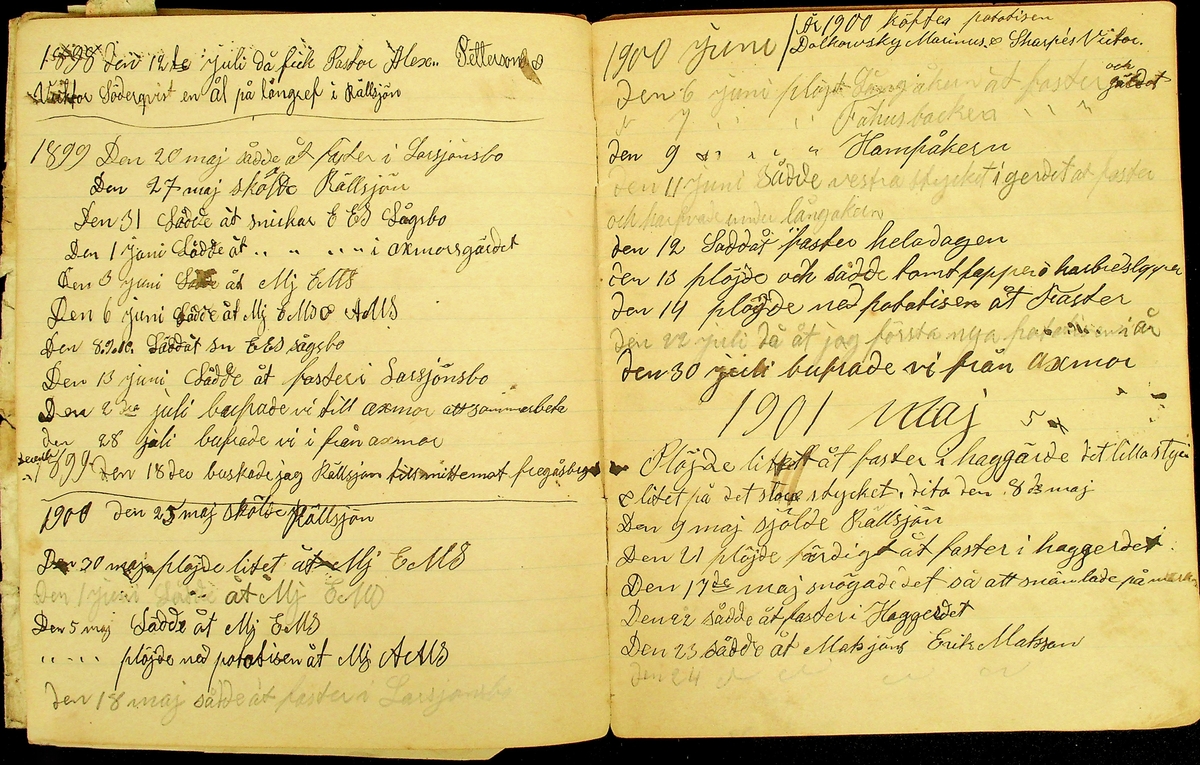 1898 den 12te i juli då fick Pastor Alex.. Petterson &
Viktor Söderqvist en ål på långref i Rällsjön
1899 Den 20 maj sådde åt faster i Larsjönsbo
Den 27 maj sköfde Rällsjön
Den 31 sådde åt snickar E ES Sågsbo
Den 1 juni sådde åt .. .. .. .. i axmorsgärdet
Den 3 juni sådde åt Mj EMS
Den 6 juni sådde åt Mj EMS & AMS
Den 8.9.10. sådde åt sn EES sågsbo
Den 13 juni sådde åt faster i Larsjönsbo
Den 2 dra juli bufrade vi till axmor
den 28 juli bufrade vi i från axmor
1899 den 18 dec buskade jag Rällsjön mittemot
1900 den 25 maj skölde Rällsjön
Den 30 maj plöjde litet åt Mj EMS
Den 1 juni sådde åt Mj EMS
Den 5 maj sådde åt Mj EMS
.. .. .. plöjde ned potatisen åt Mj AMS
den 18 maj sådde åt faster i Larsjönsbo
1900 juni
År 1900 köptes potatisen
Dalkowsky Marinus. & Sharpes Victor.
den 6 juni plöjt Långåkern åt faster och gäldet
7 " " Fähusbacken " " "
den 9 " " " Hampåkern
den 11 juni sådde vestra stycket i gerdet åt faster
och harfvade under långåkern
den 12 sådd åt faster heladagen
den 13 plöjde och sådde
den 14 plöjde ned potatisen åt Faster
den 22 juli då åt jag första nya potatisen i år
den 30 juli bufrade vi från axmor
1901 maj
Plöjde litet åt faster i haggärde det lilla
& litet på det stora stycket. dito den 8 maj
Den 9 maj sjölde Rällsjön
Den 21 plöjde färdigt åt faster i haggerdet
Den 17de maj snögade det så att snön lade på
Den 22 sådde åt faster i Haggerdet
Den 23 sådde åt Matsjons Erik Matsson
den 24